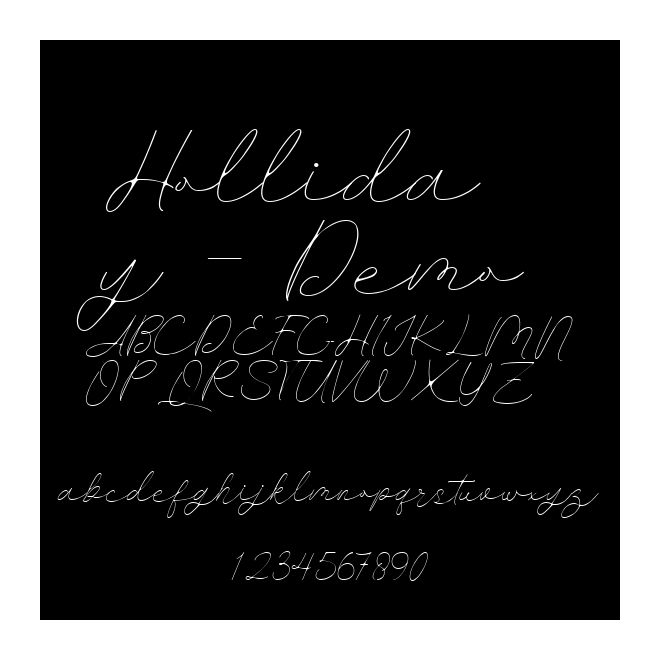 Hollida
y - Demo
ABCDEFGHIJKLMN
OPQRSTUVWXYZ
abcdefghijklmnopqrstuvwxyz
1234567890